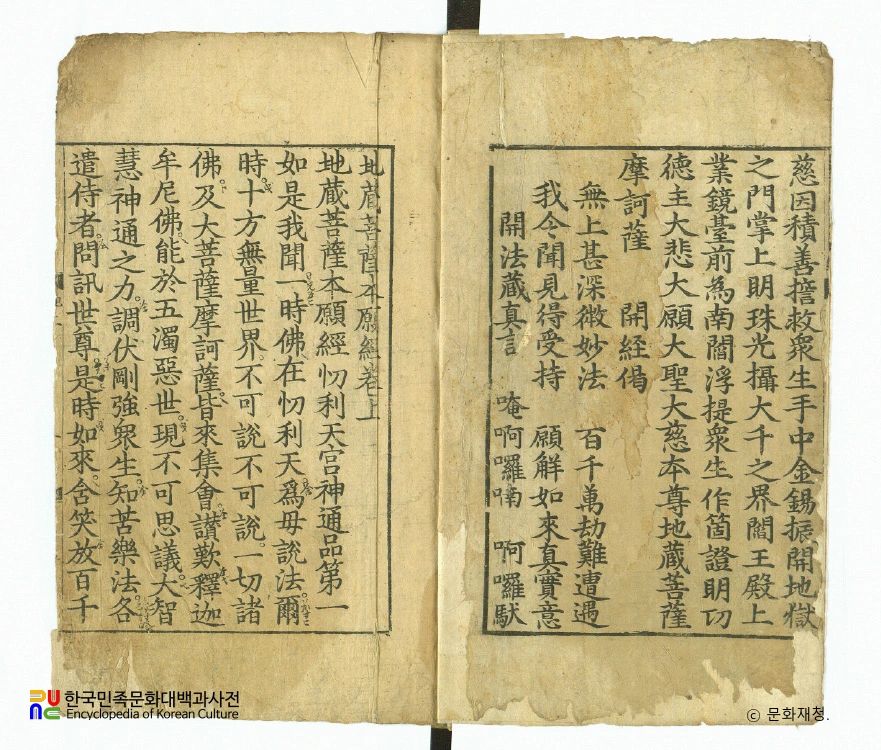 慈因積善擔救衆生手中金錫振開地獄
之門掌上明珠光攝大千之界閻王殿上
業鏡臺前為南閻浮提衆生作箇證明功
德主大悲大願大聖大慈本尊地藏菩薩
摩訶薩 開経偈
無上甚深微妙法 百千萬劫難遭遇
我今聞見得受持 願解如來真實意
開法藏真言 唵啊囉喃 啊囉馱
地藏菩薩本願經卷上
地藏菩薩本願經忉利天宮神通品第一
如是我聞一時佛在忉利天爲母說法爾
時十方無量世界不可說不可說一切諸
佛及大菩薩摩訶薩皆來集會讃歎釋迦
牟尼佛能於五濁惡世現不可思議大智
慧神通之力調伏剛強衆生知苦樂法各
遣侍者問訊世尊是時如來含笑放百千
한국민족문화대백과사전
Encyclopedia of Korean Culture
© 문화재청.